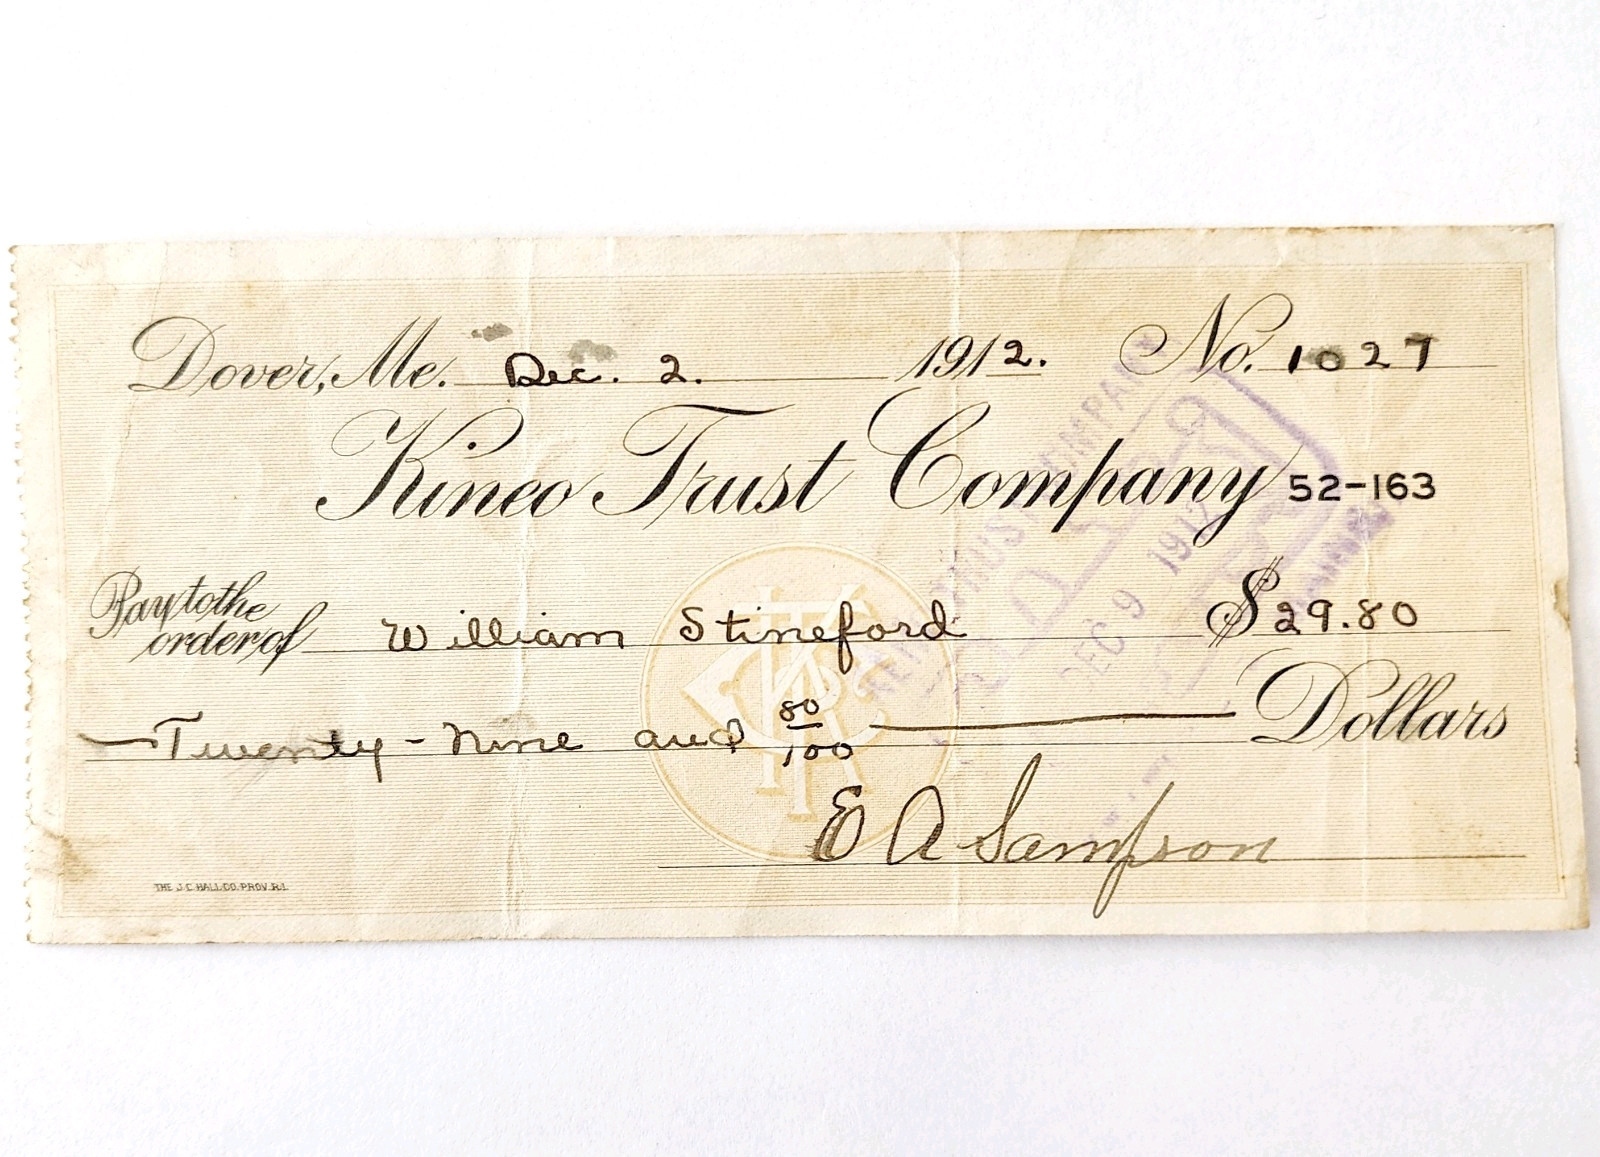 Dover, Me. Dec. 2. 1912. No. 1027
Kineo Trust Company 52-163
Pay to the order of William Stineford $ 29.80
Twenty-Nine and 80/100 Dollars
E A Sampson
THE J.C. HALL CO. PROV. R.I.
TRUST COMPANY
PAID
DEC 9 1912